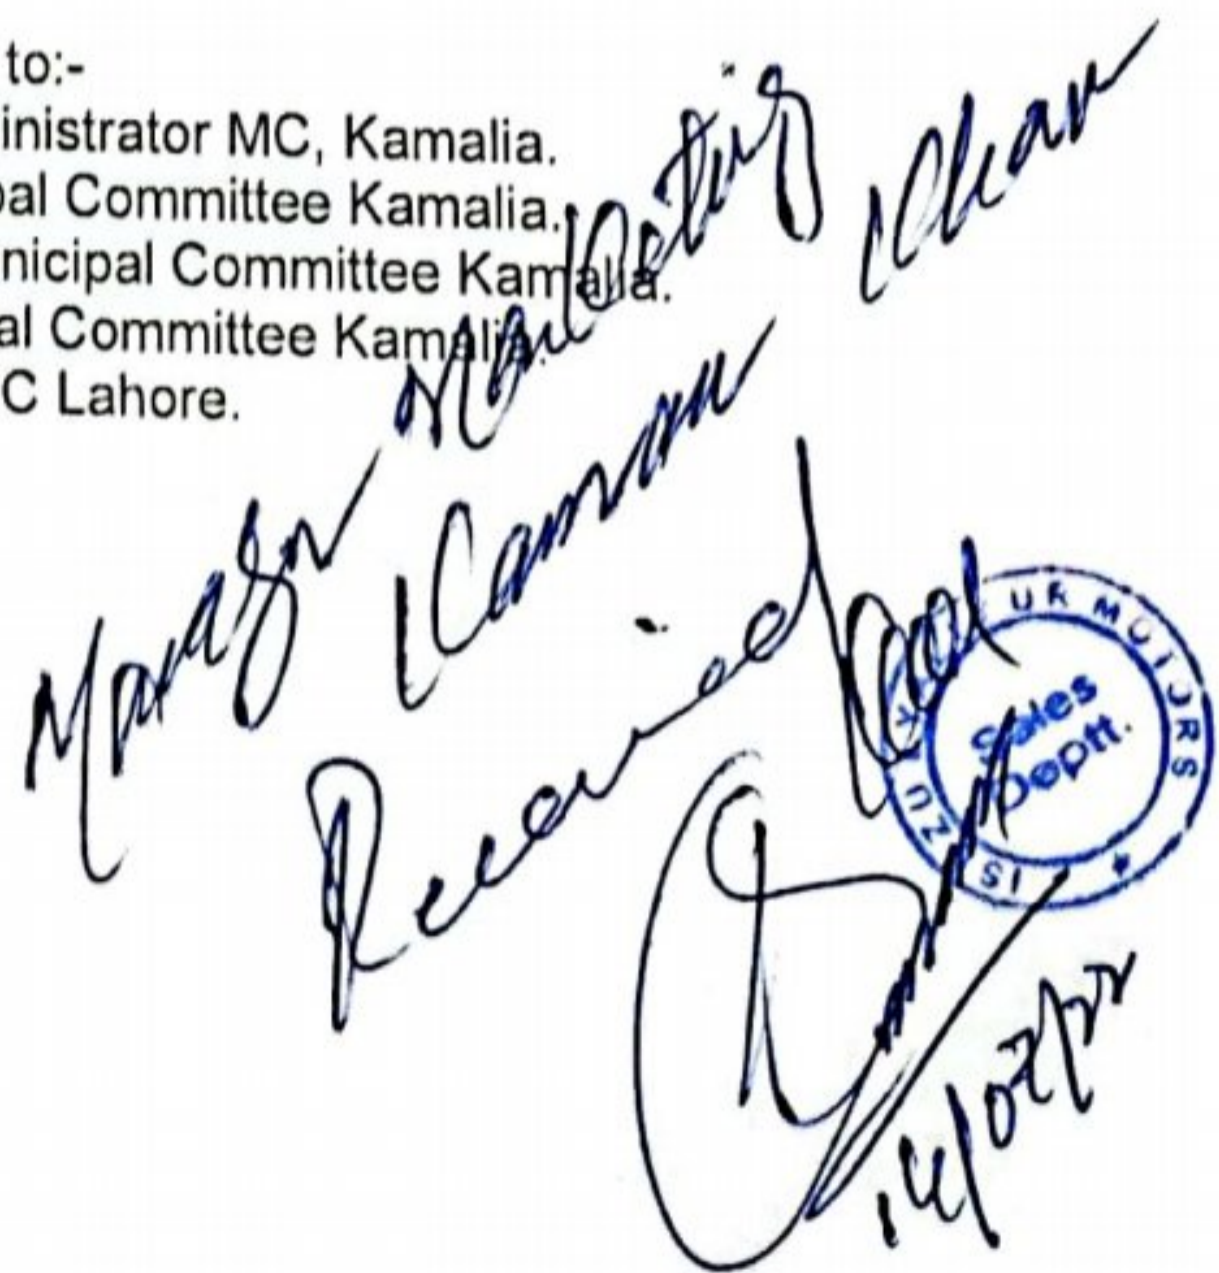 to:-
inistrator MC, Kamalia.
pal Committee Kamalia.
nicipal Committee Kamalia.
al Committee Kamalia.
C Lahore.
Manager Marketing
Kamran Khan
Received
ISUZU
UR MOTORS
Sales
Deptt.